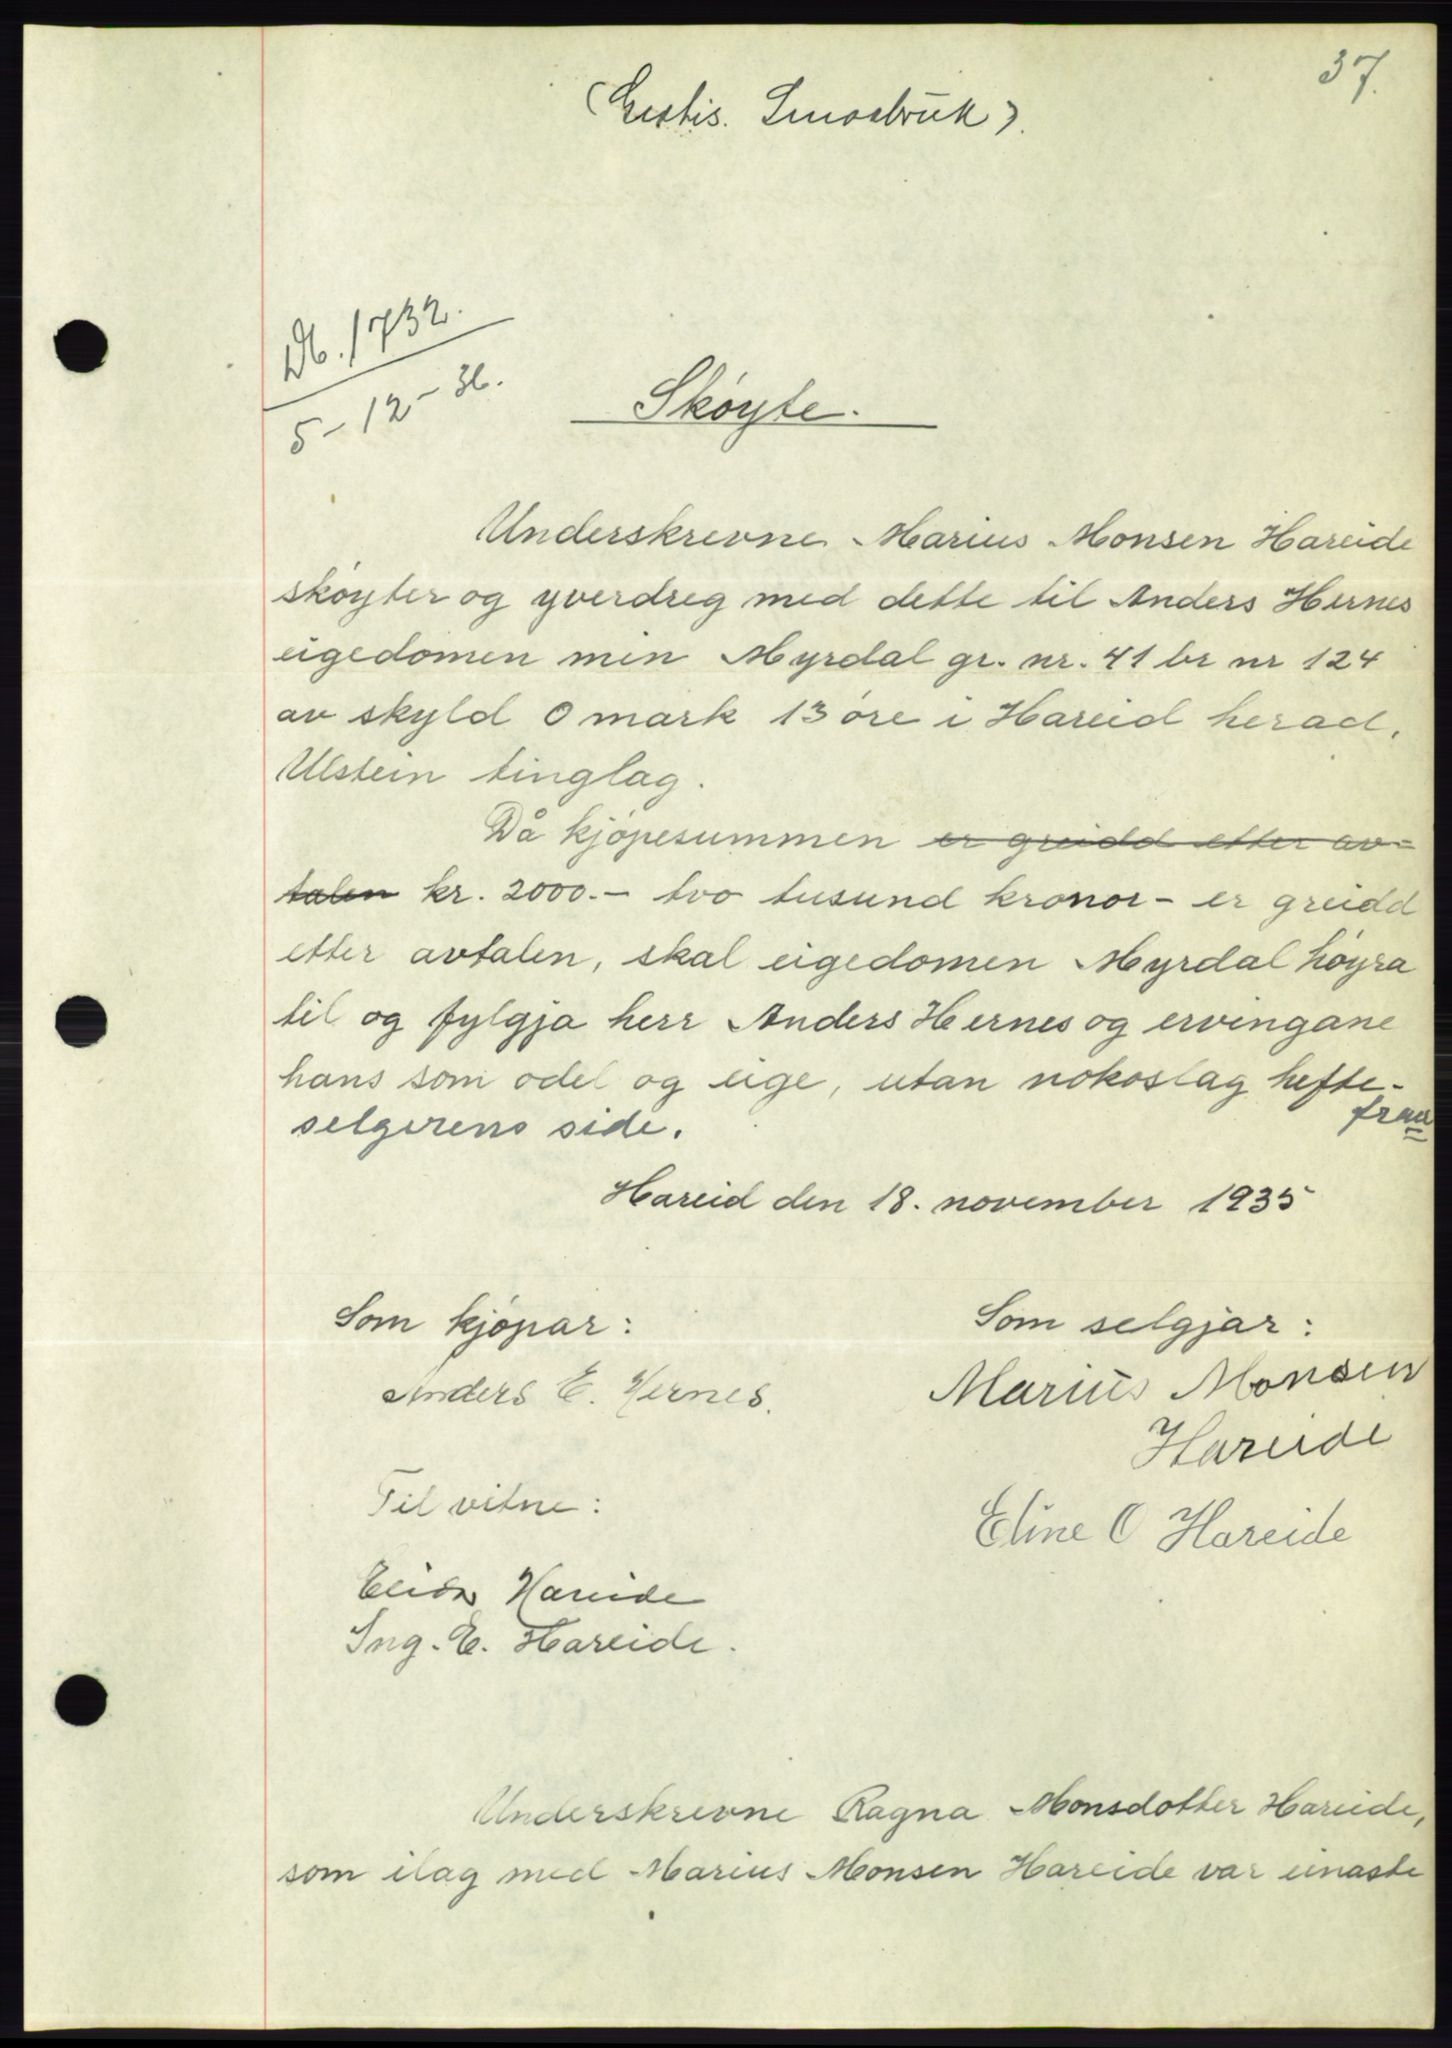 37.
(Gratis. Småbruk).
Db. 1732.
5-12-36.
Skøyte.
Underskrevne Marius Monsen Hareide
skøyter og yverdreg med dette til Anders Hernes
eigedomen min Myrdal gr. nr. 41 br nr 124
av skyld 0 mark 13 øre i Hareid herad,
Ulstein tinglag.
Då kjøpesummen er greidd etter av=
talen kr. 2000.- tvo tusund kronor - er greidd
etter avtalen, skal eigedomen Myrdal høyra
til og fylgja herr Anders Hernes og ervingane
hans som odel og eige, utan nokoslag hefte-
fraa
selgerens side.
Hareid den 18. november 1935
Som kjøpar:
Anders E. Hernes.
Som selgjar:
Marius Monsen
Hareide
Eline O Hareide
Til vitne:
Hareide
Ing. E. Hareide.
Underskrevne Ragna Monsdotter Hareide,
som ilag med Marius Monsen Hareide var einaste